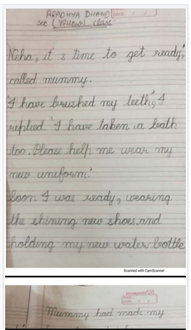 ARADHYA DHAND
Neha, it's time to get ready,'
called mummy.
'I have brushed my teeth', I
replied 'I have taken a bath
too. Please help me wear my
new uniform.'
Soon I was ready, wearing
the shining new shoes and
holding my new water bottle
Scanned with CamScanner
Mummy had made my